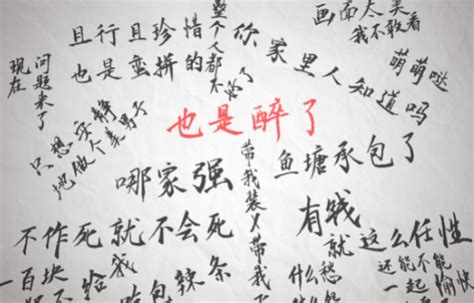 且行且珍惜
整个人都不好了
画面太美
我不敢看
你家里人知道吗
也是蛮拼的
问题来了
现在
萌萌哒
只想安静
地做个美男子
也是醉了
哪家强
带我装X带我
鱼塘承包了
不作死就不会死
有钱
就这么任性
一百块
给我
包辣条
什么愁
还能不能
一起愉